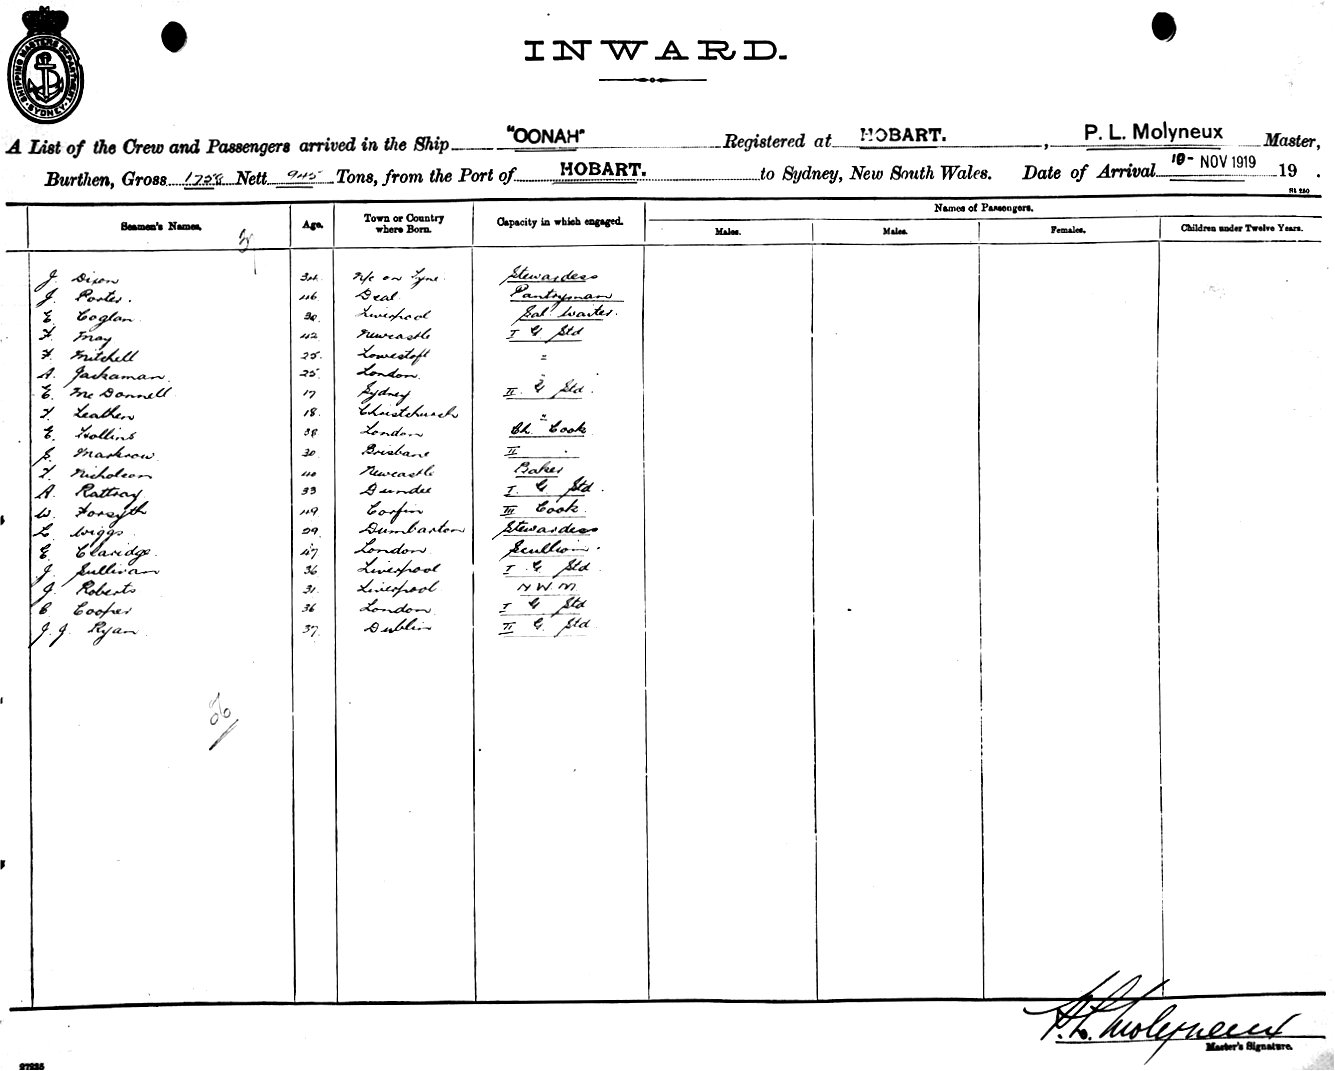 SHIPPING MASTERS DEPARTMENT SYDNEY
INWARD.
A List of the Crew and Passengers arrived in the Ship "OONAH" Registered at HOBART. , P. L. Molyneux Master,
Burthen, Gross 1758 Nett 945 Tons, from the Port of HOBART. to Sydney, New South Wales. Date of Arrival 10- NOV 1919 19 .
Seamen's Names. Age. Town or Country where Born. Capacity in which engaged. Names of Passengers.
Males. Males. Females. Children under Twelve Years.
J. Dixon N/c on Tyne Stewardess
J. Porter. 46 Deal Pantryman
E. Coglan Liverpool Sal Waiter.
F. May 42 Newcastle I G Std
F. Mitchell 25 Lowestoft "
A. Jackaman 25 London "
E. McDonnell 17 Sydney II G Std.
F. Leathen 18 Christchurch "
E. Hollins 38 London Ch. Cook
S. Markrow 30 Brisbane II "
F. Nicholson 40 Newcastle Baker
A. Rattray 33 Dundee I. G Std.
W. Forsyth 49 III Cook
L. Wiggs 29 Dumbarton Stewardess
E. Claridge 47 London Scullion.
J. Sullivan 36 Liverpool I G Std
J. Roberts 31 Liverpool N W M
C Cooper 36 London I G Std
J. J. Ryan 37 Dublin II G. Std
P. L. Molyneux
Master's Signature.